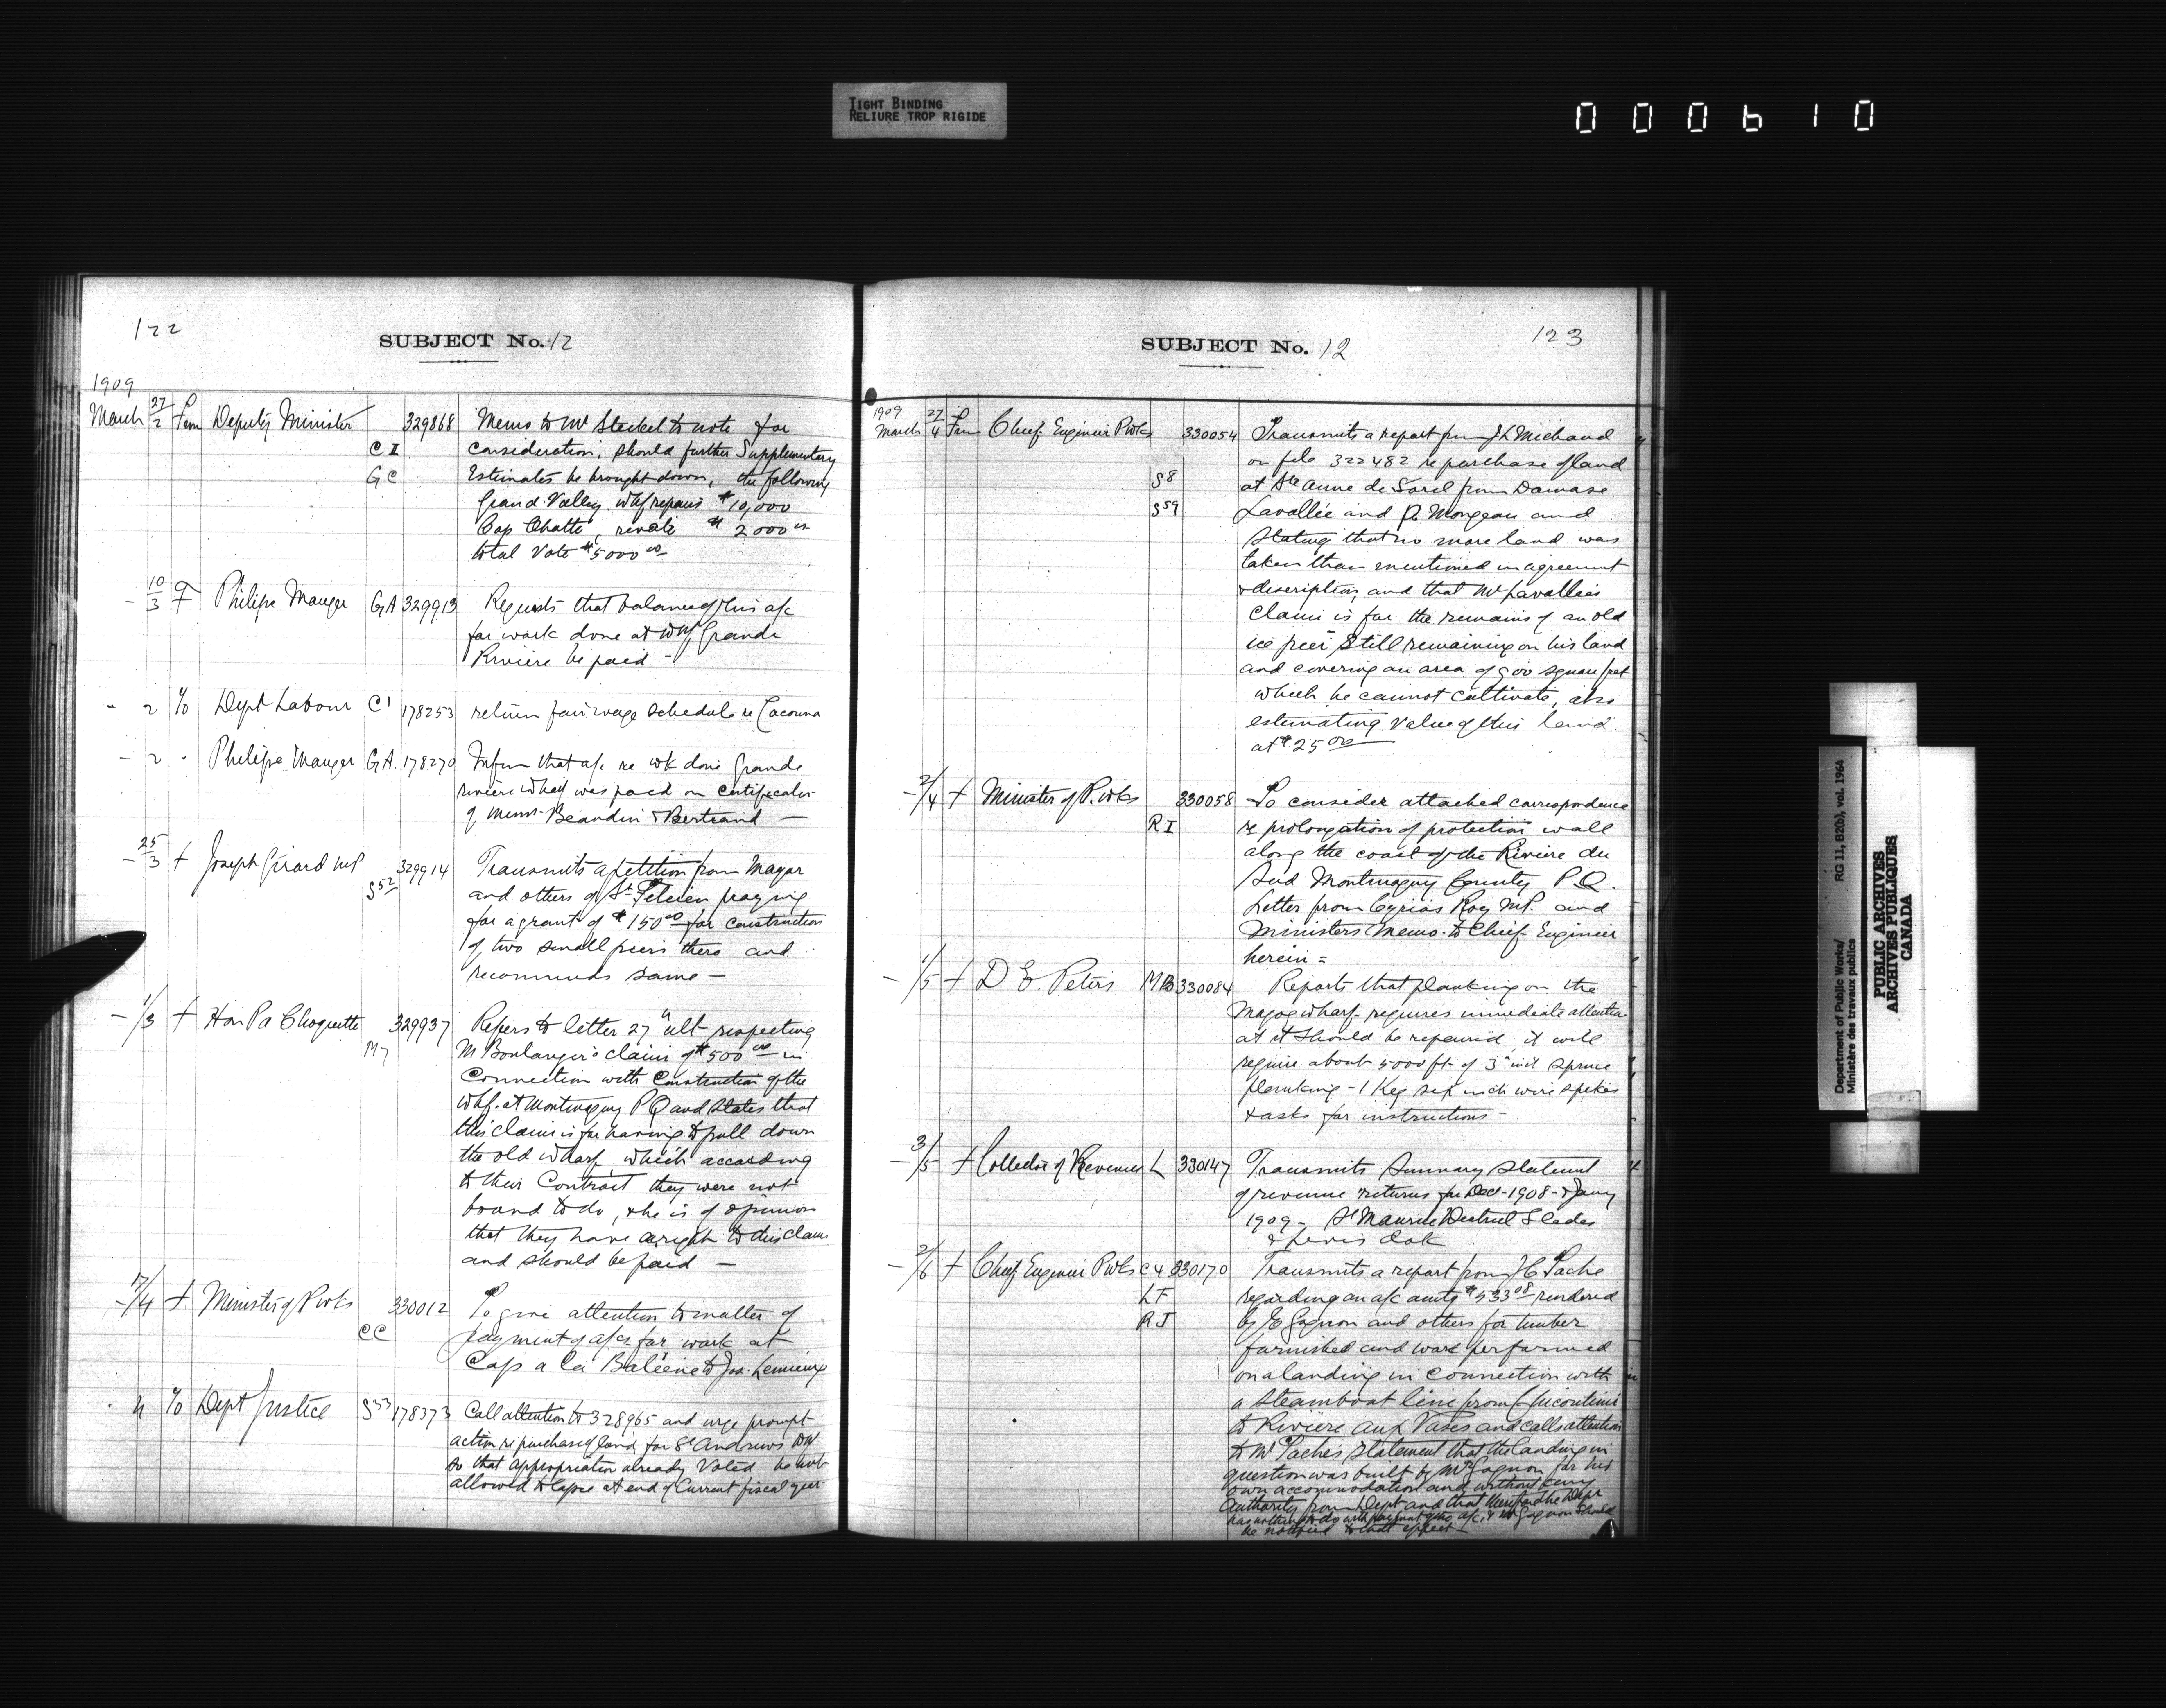 TIGHT BINDING
RELIURE TROP RIGIDE
000610
122
SUBJECT No. 12
1909
March 27/2 From Deputy Minister 329868 Memo to Mr Steckel to note for
C I consideration, should further Supplementary
G C Estimates be brought down, the following
Grand Valley whf repairs $10,000
Cap Chatte, revote $2000 00
total Vote $5000 00
- 10/3 F Philipe Mauger G A 329913 Requests that balance of his a/c
for work done at Whf Grande
Rivière be paid -
- 2 To Dept Labour C 1 178253 return fair wage schedule re Cacouna
- 2 - Philipe Mauger G A 178270 Inform that a/c re wk done Grande
rivière Wharf was paid on Certificate
of Messrs Beaudin & Bertrand -
- 25/3 + Joseph Girard MP 329914 Transmits a petition from Mayor
S 52 and others of St Felicien praying
for a grant of $150 00 for construction
of two small piers there and
recommends same -
- 1/3 + Hon P a Choquette 329937 Refers to letter 27 " ult respecting
M 7 M Boulanger's claim of $500 00 in
Connection with Construction of the
Whf. at Montmagny P Q and states that
this claim is for having to pull down
the old wharf, which according
to their Contract they were not
bound to do, & he is of opinion
that they have a right to this claim
and should be paid -
- 17/4 + Minister of P Wks 330012 To give attention to matter of
C C payment of a/cs for work at
Cap a la Baleine to Jos. Lemieux
- 4 To Dept Justice S 53 178373 Call attention to 328965 and urge prompt
action re purchase of land for St Andrews
so that appropriation already Voted be not
allowed to lapse at end of Current fiscal year
123
SUBJECT No. 12
1909
March 27/4 From Chief Engineer P Wks 330054 Transmits a report from J L Michaud
on file 322482 re purchase of land
S 8 at Ste Anne de Sorel from Damase
S 59 Lavallée and P. Mongeau and
stating that no more land was
taken than mentioned in agreement
& description, and that Mr Lavallées
claim is for the remains of an old
ice pier still remaining on his land
and covering an area of 900 square feet
which he cannot cultivate, also
estimating value of this land
at $25 00
- 2/4 + Minister of P. Wks 330058 To consider attached correspondence
R I re prolongation of protection wall
along the coast of the Rivière du
Sud Montmagny County P.Q.
Letter from Cyrias Roy MP. and
Ministers Memo. to Chief Engineer
herein =
- 1/5 + D E. Peters M B 330084 Reports that planking on the
Magog wharf requires immediate attention
at it should be repaired it will
require about 5000 ft of 3" Spruce
planking - 1 Keg six inch wire spikes
& asks for instructions -
- 3/5 + Collector of Revenues L 330147 Transmits Summary Statement
of revenue returns for Dec - 1908 - & Jany
1909 - St Maurice District Slides
& Levis
- 2/6 + Chief Engineer P Wks C 4 330170 Transmits a report from J C Taché
L F regarding an a/c amtg $533 08 rendered
R J by E Gagnon and others for timber
furnished and work performed
on a landing in Connection with
a Steamboat line from Chicoutimi
to Rivière aux Vases and calls attention
to Mr Taché's statement that the landing in
question was built by Mr Gagnon for his
own accommodation and without any
authority from Dept and that therefore the Dept
has nothing to do with payment of the a/c, & Mr Gagnon should
be notified to that effect
Department of Public Works/ RG 11, B2(b), vol. 1964
Ministère des travaux publics
PUBLIC ARCHIVES
ARCHIVES PUBLIQUES
CANADA